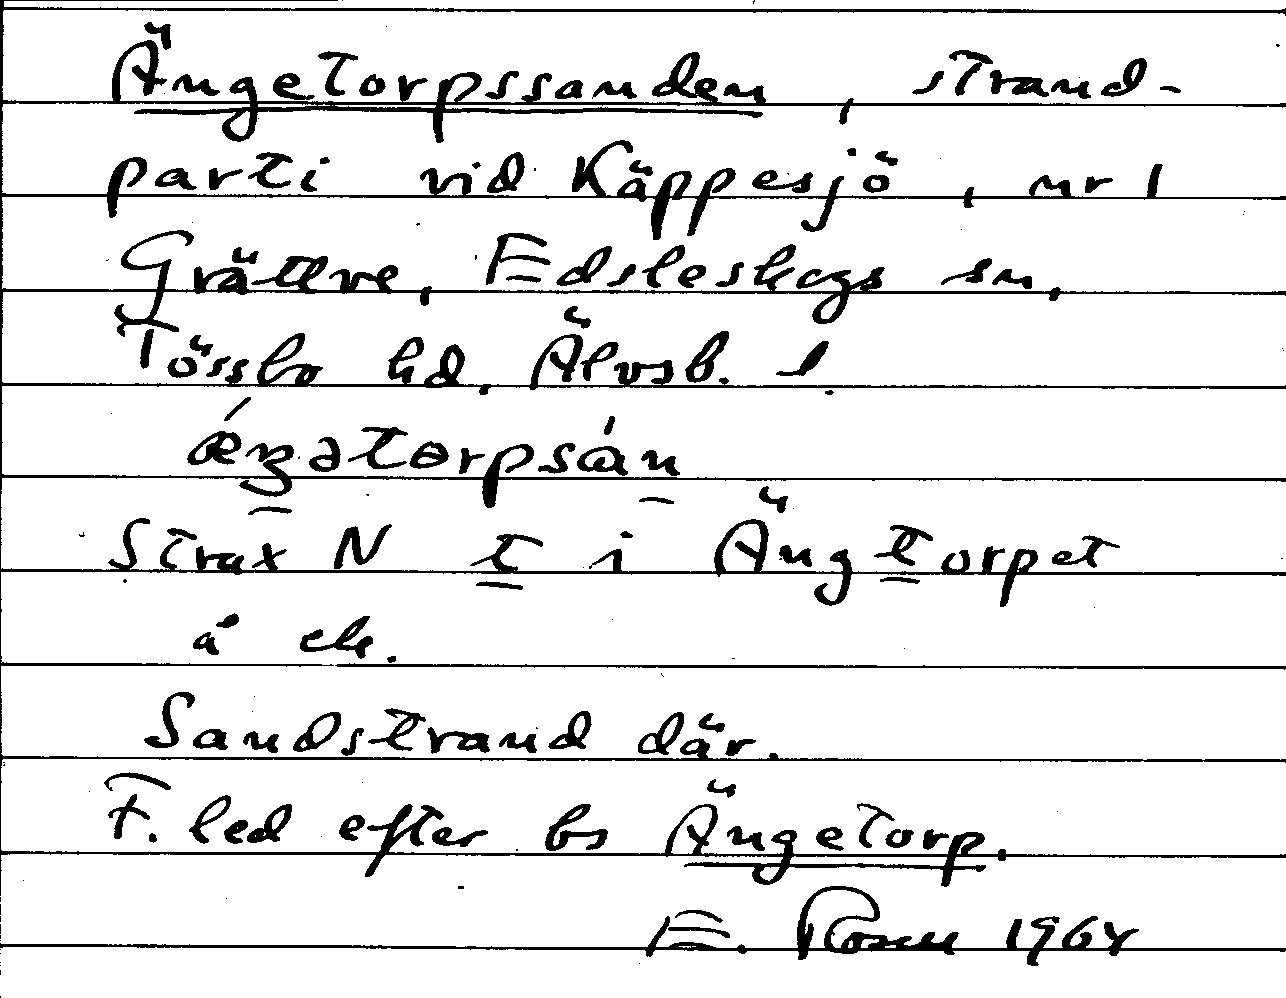 Ängetorpssanden, strand-
parti vid Käppesjö, nr 1
Grättve, Edsleskogs sn,
Tössbo hd. Älvsb. l.
ǽŋətɵrpsán
Strax N t i Ängtorpet
å ek.
Sandstrand där.
F. led efter bs Ängetorp.
E. Rosen 1964